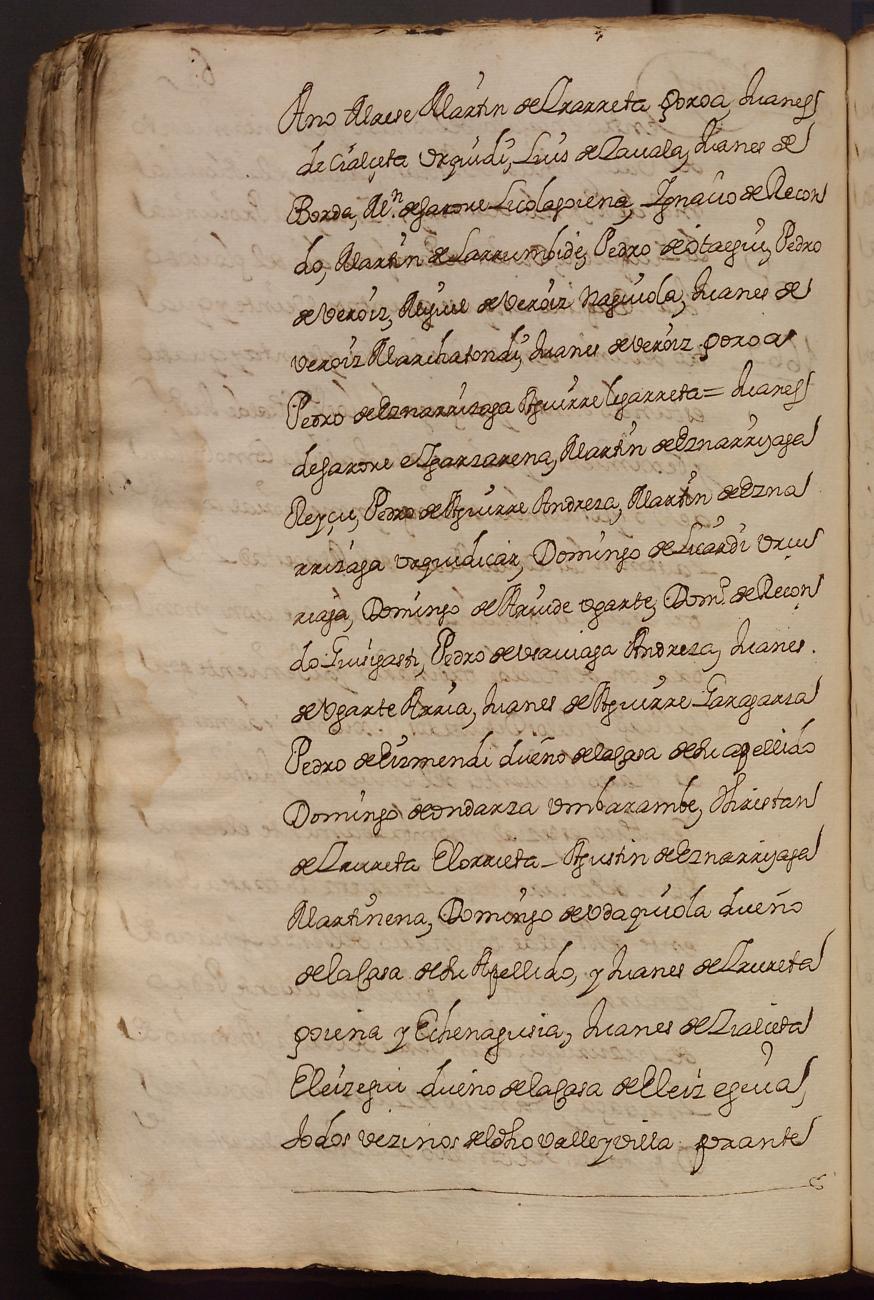 Ano Alzese Martin de Izarreta goroa, Juanes
de Cialçeta Urquidi, Luis de Zavala, Juanes de
Borda, Mn. de Jaxore Licolagoiena, Ignaçio de Recon
do, Martin de Larrumbide, Pedro de otaegui, Pedro
de Veroiz, Miguel de Veroiz Naguiola, Juanes de
Veroiz Marchatondi, Juanes de Veroiz goroa
Pedro de Eznarrizaga Aguirre legarreta = Juanes
de Jaxore e Igarzarena, Martin de Eznarriyaga
Reyçu, Pedro de Aguirre Andreza, Martin de Ezna
rrizaga Urquidicar, Domingo de Licardi Urui
riaga, Domingo de Aruide Ugarte, Domo. de Recon
do Guisigasti, Pedro de Usauiaga Andreza, Juanes
de Ugarte Arria, Juanes de Aguirre Garagarza
Pedro de Eizmendi dueño de la Casa de su apellido
Domingo de ondarza Umbarambe, Christan
de Izurreta Elorrieta - Agustin de Eznarriyaga
Martinena, Domingo de Udaquiola dueño
de la Casa de su Apellido, y Juanes de Izureta
goiena y Echenagusia, Juanes de Zialçeta
Eleizegui dueño de la Casa de Eleiz egeua,
todos vezinos del dho valle y villa por ante